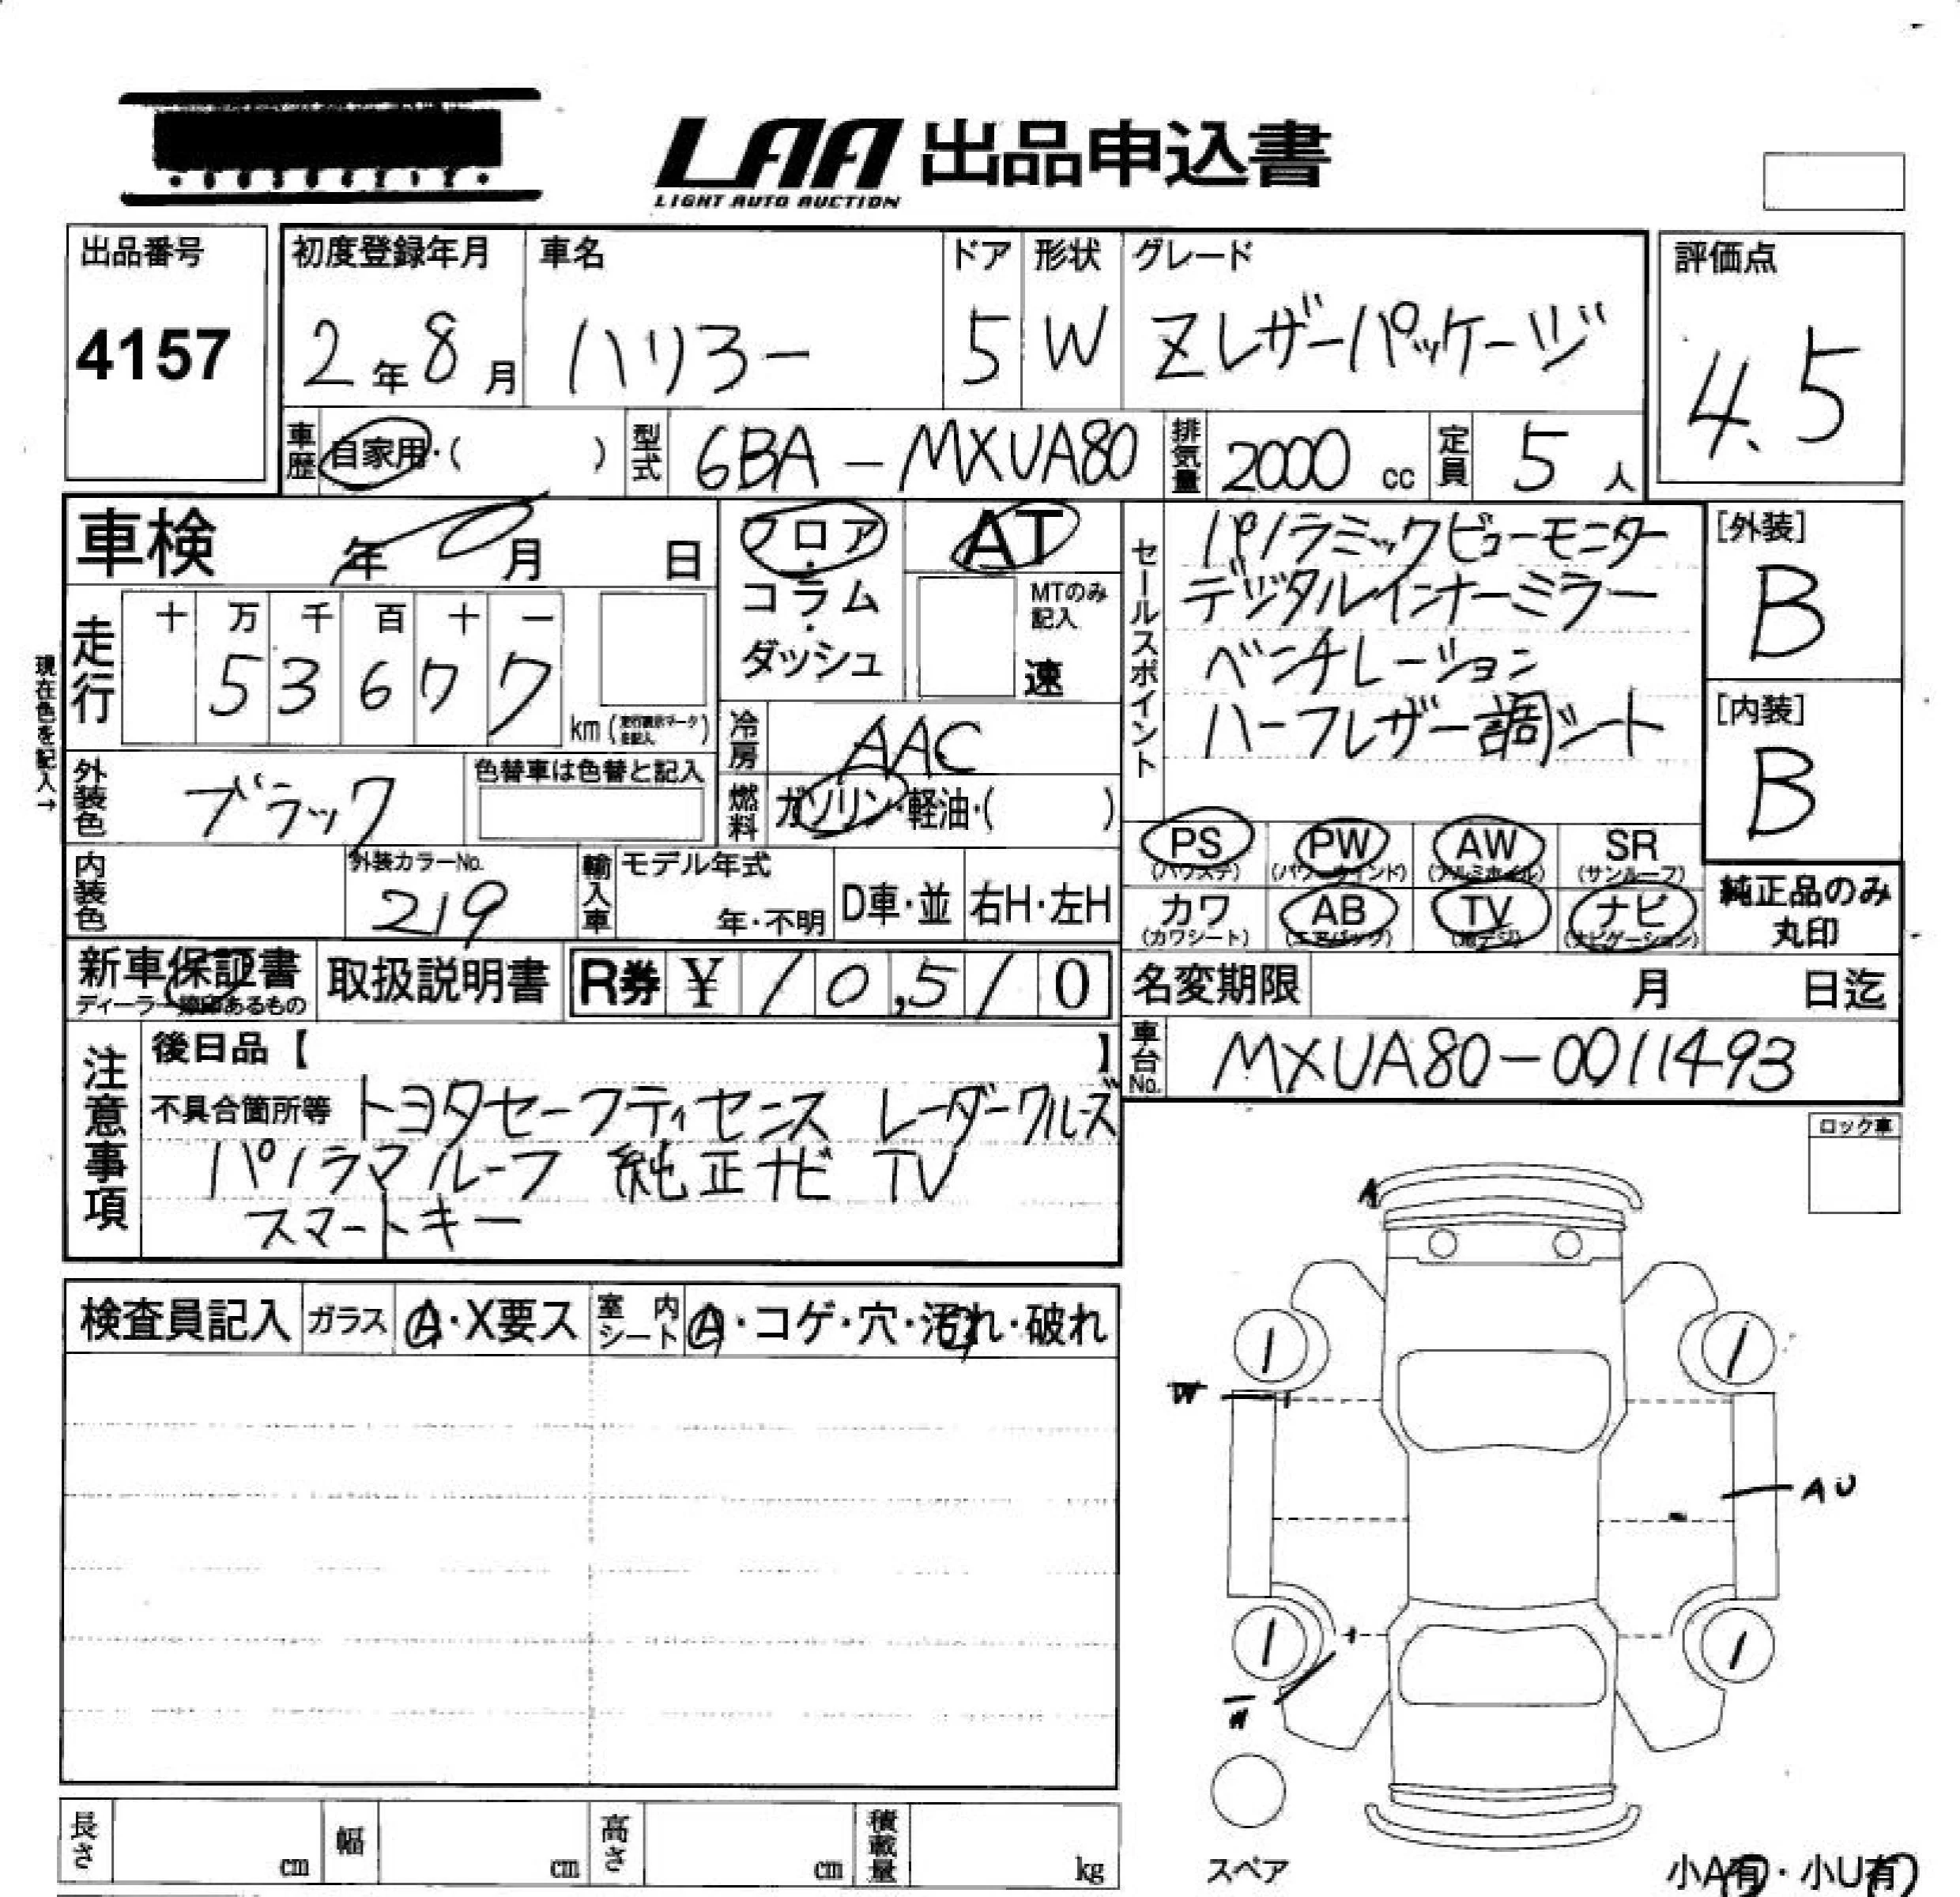 LAA 出品申込書
LIGHT AUTO AUCTION
出品番号
4157
初度登録年月
2年8月
車名
ハリアー
ドア
5
形状
W
グレード
Zレザーパッケージ
評価点
4.5
車歴
自家用・( )
型式
6BA-MXUA80
排気量
2000 cc
定員
5人
車検 年 月 日
フロア・コラム・ダッシュ
AT
MTのみ記入
速
セールスポイント
パノラミックビューモニター
デジタルインナーミラー
ベンチレーション
ハーフレザー調シート
[外装]
B
[内装]
B
現在色を記入→
走行
十 万 千 百 十 一
5 3 6 7 7
km
冷房
AAC
外装色
ブラック
色替車は色替と記入
燃料
ガソリン・軽油・( )
PS (パワステ)
PW (パワーウインド)
AW (アルミホイル)
SR (サンルーフ)
カワ (カワシート)
AB (エアバッグ)
TV (地デジ)
ナビ (ナビゲーション)
純正品のみ丸印
内装色
外装カラーNo.
219
輸入車
モデル年式
年・不明
D車・並
右H・左H
新車保証書
ディーラー捺印あるもの
取扱説明書
R券 ¥ 10,510
名変期限 月 日迄
車台No.
MXUA80-0011493
注意事項
後日品【 】
不具合箇所等 トヨタセーフティセンス レーダークルーズ
パノラマルーフ 純正ナビ TV
スマートキー
ロック車
検査員記入
ガラス
A・X要ス
室内シート
A・コゲ・穴・汚れ・破れ
A
W
A U
スペア
長さ cm
幅 cm
高さ cm
積載量 kg
小A有・小U有